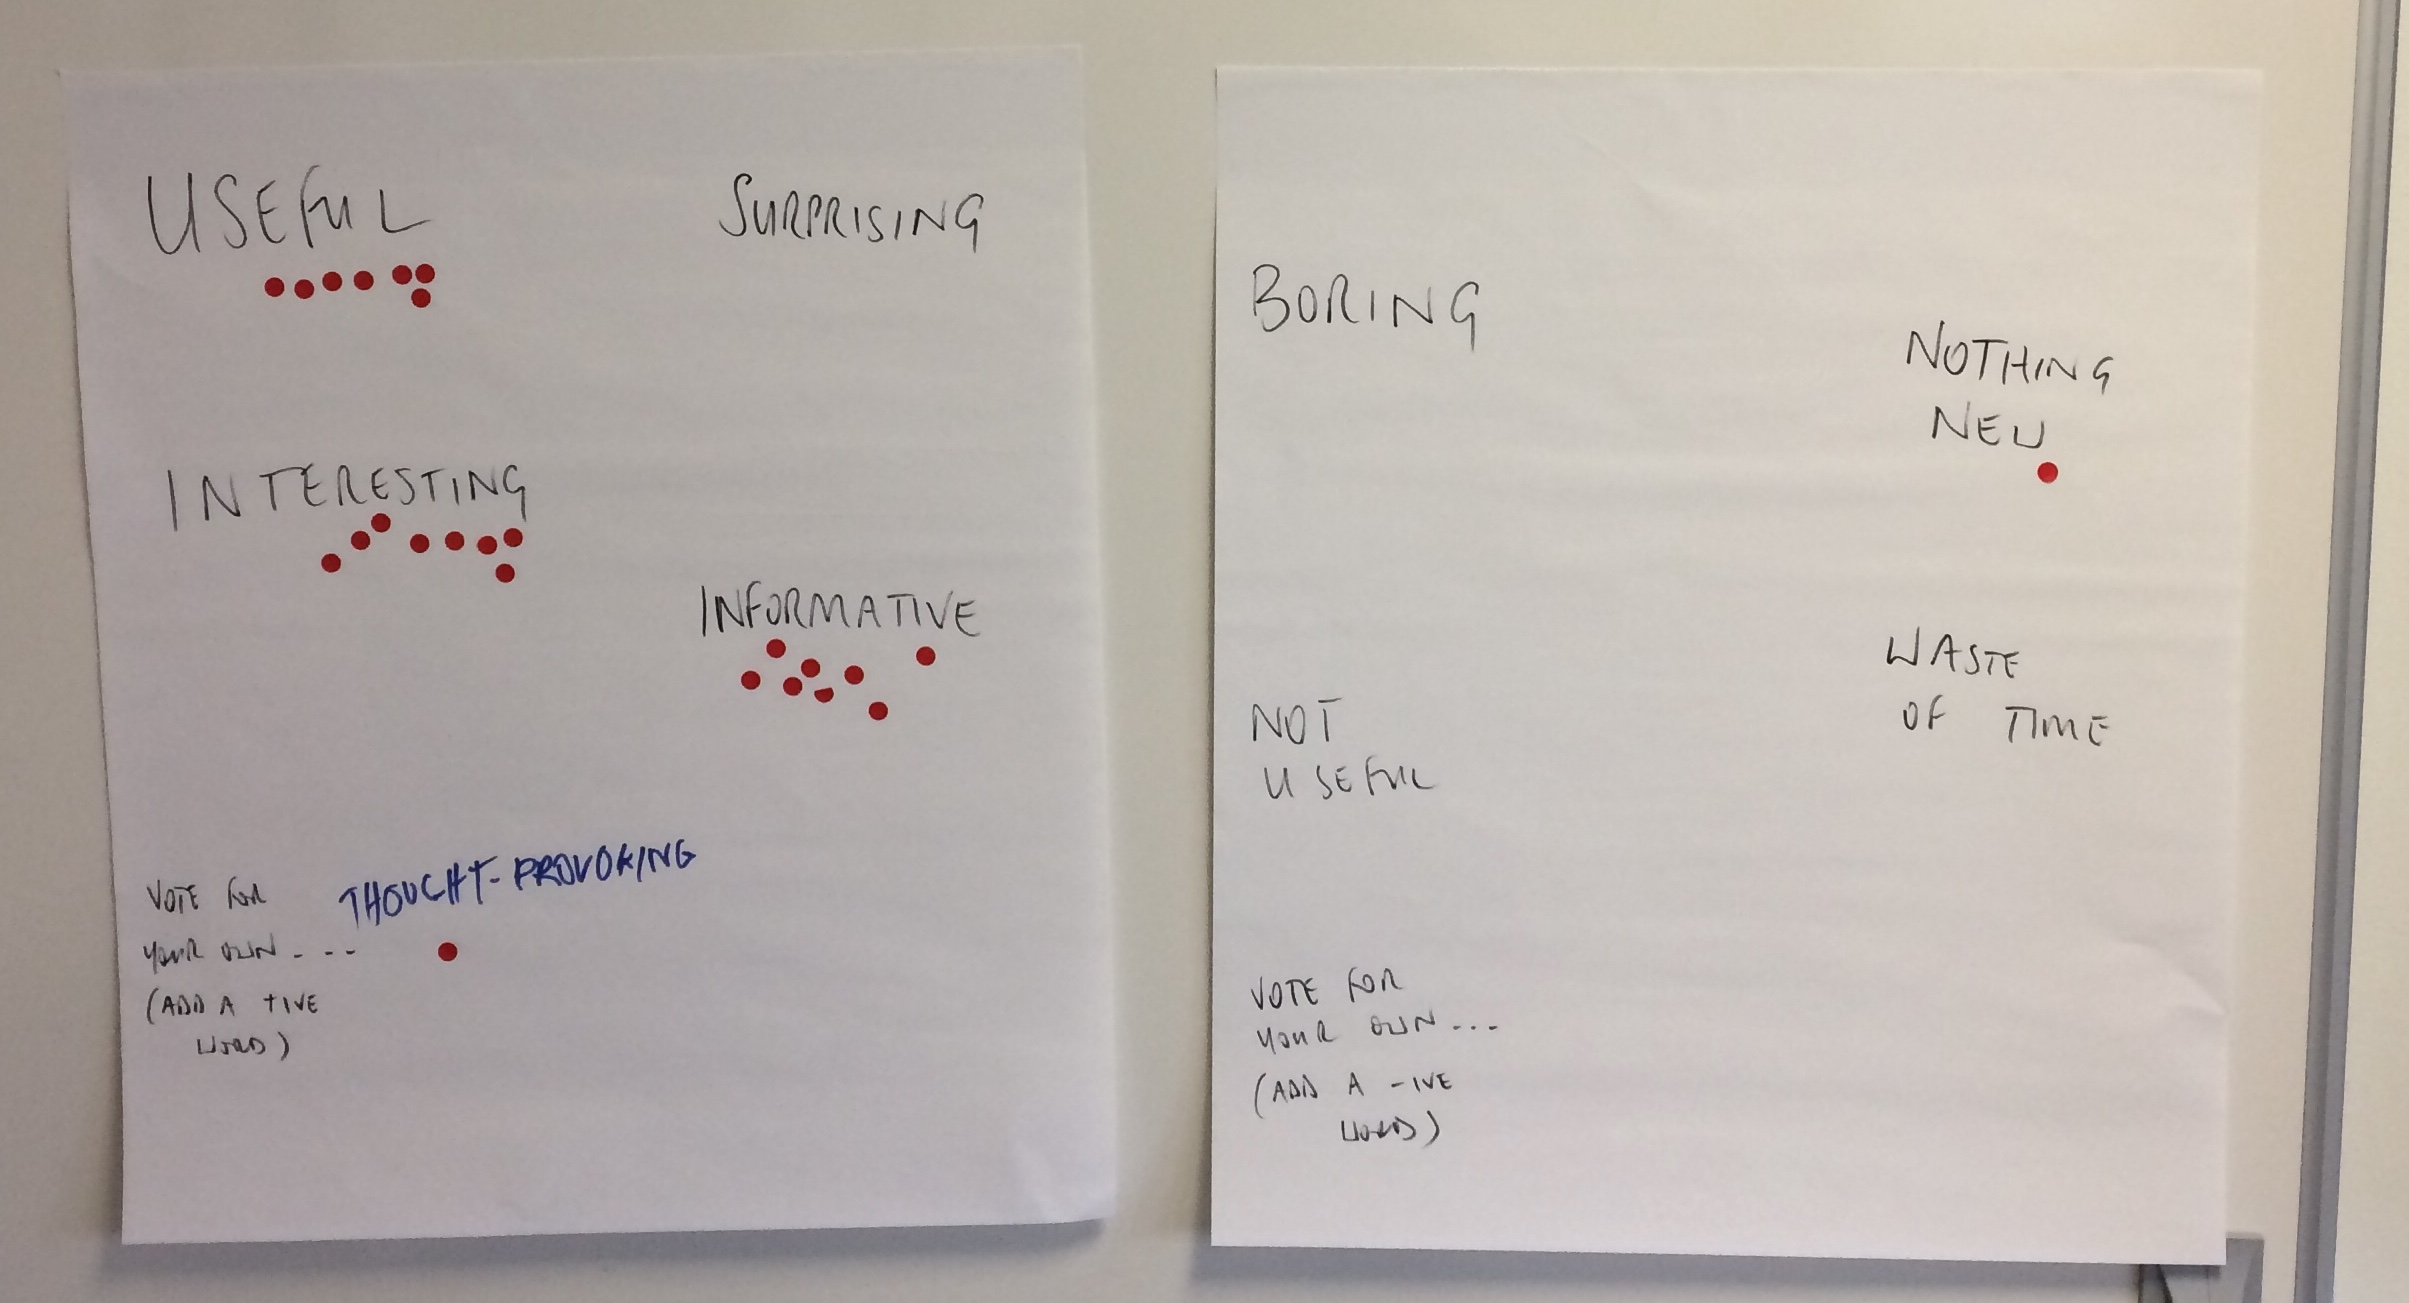 USEFUL
SURPRISING
INTERESTING
INFORMATIVE
VOTE FOR
YOUR OWN - - -
(ADD A +IVE
WORD)
THOUGHT-PROVOKING
BORING
NOTHING
NEW
WASTE
OF TIME
NOT
USEFUL
VOTE FOR
YOUR OWN ---
(ADD A -IVE
WORD)